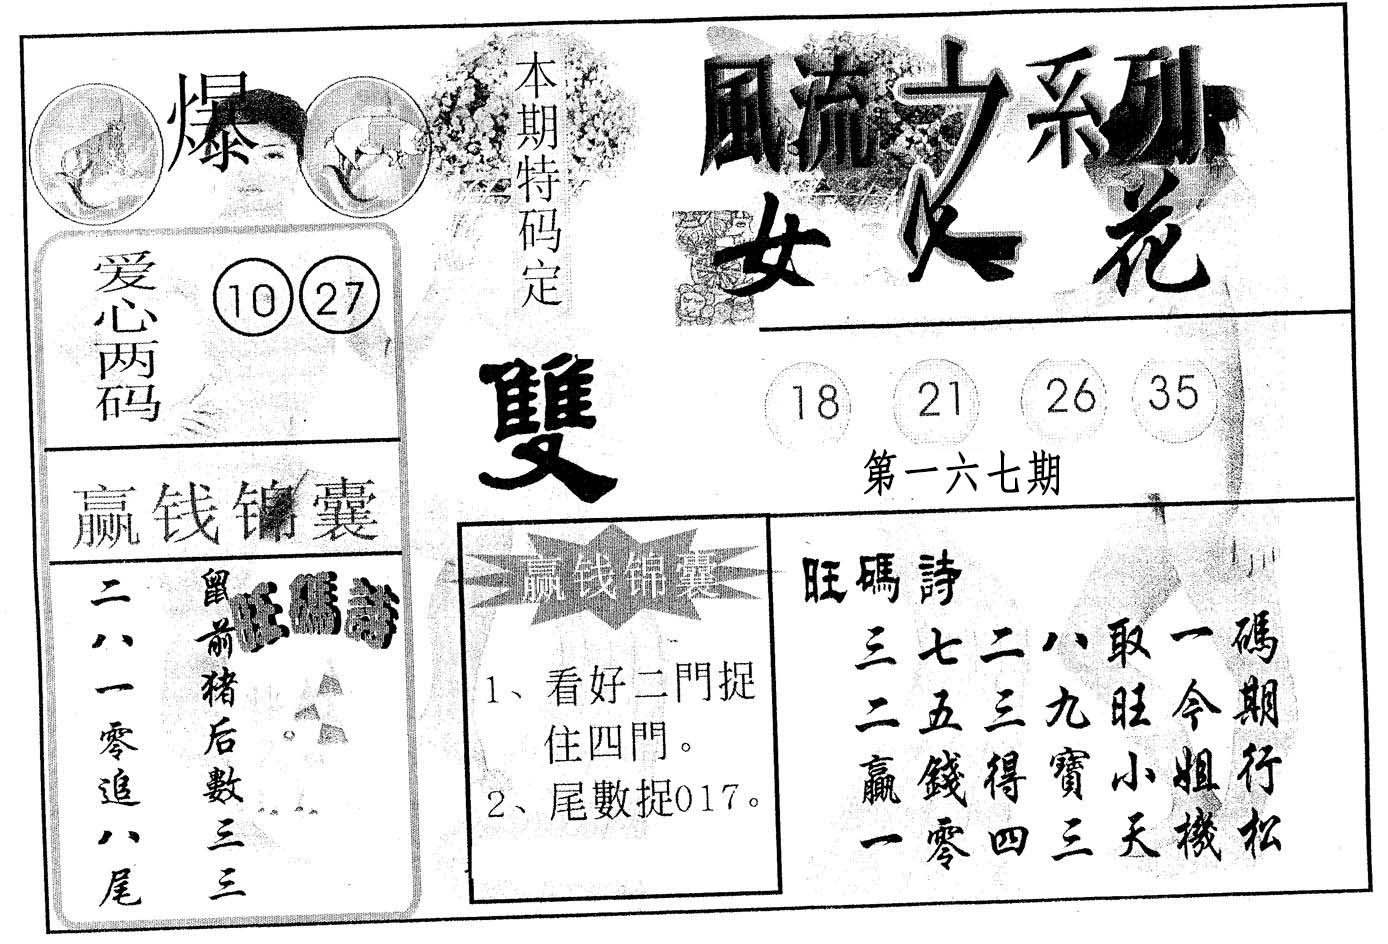 爆
本期特码定
雙
風流之系列
女人花
爱心两码
10 27
18 21 26 35
第一六七期
赢钱锦囊
旺碼詩
鼠前猪后數三三
二八一零追八尾
赢钱锦囊
1、看好二門捉
住四門。
2、尾數捉017。
旺碼詩
三七二八取一碼
二五三九旺今期
贏錢得寶小姐行
一零四三天機松